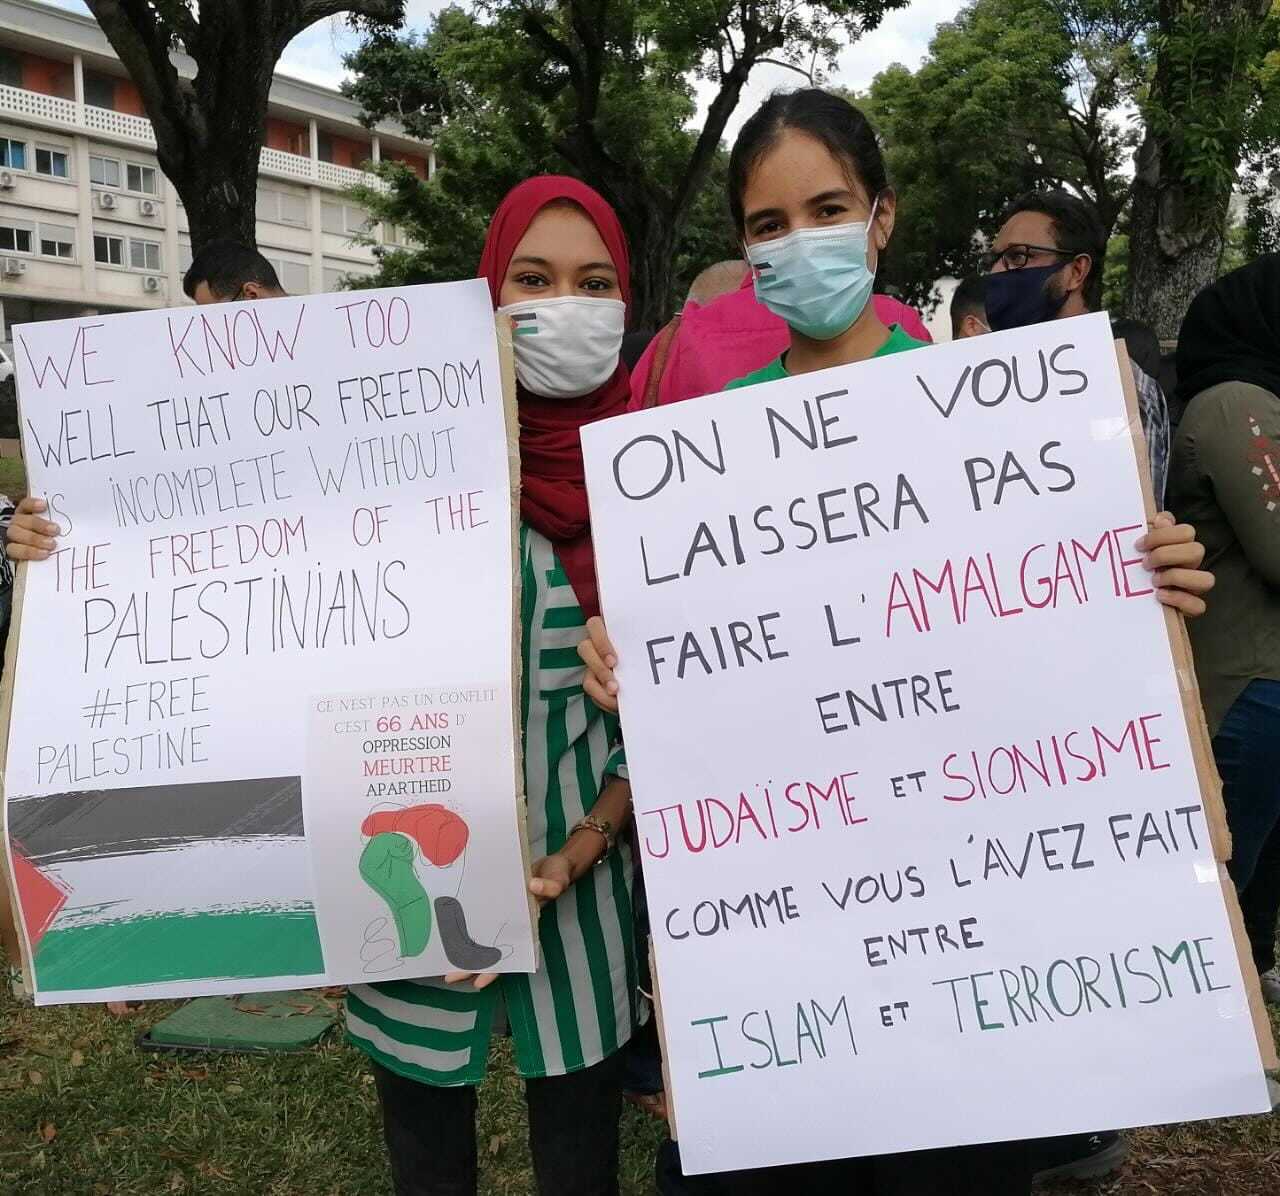 WE KNOW TOO
WELL THAT OUR FREEDOM
is iNCOMPLETE WITHOUT
THE FREEDOM OF THE
PALESTiNiANS
#FREE
PALESTiNE
CE N'EST PAS UN CONFLIT
C'EST 66 ANS D'
OPPRESSION
MEURTRE
APARTHEID
ON NE VOUS
LAISSERA PAS
FAIRE L'AMALGAME
ENTRE
JUDAÏSME ET SIONISME
COMME VOUS L'AVEZ FAIT
ENTRE
ISLAM ET TERRORISME